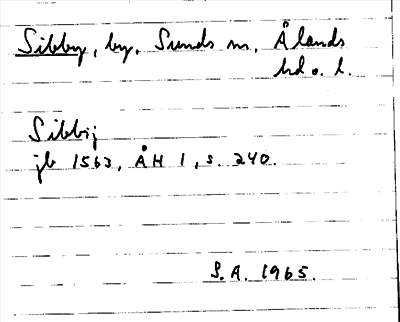 Sibby, by, Sunds sn, Ålands
hd o. l.
Sibbij
jb 1563, ÅH 1, s. 240.
S.A. 1965.